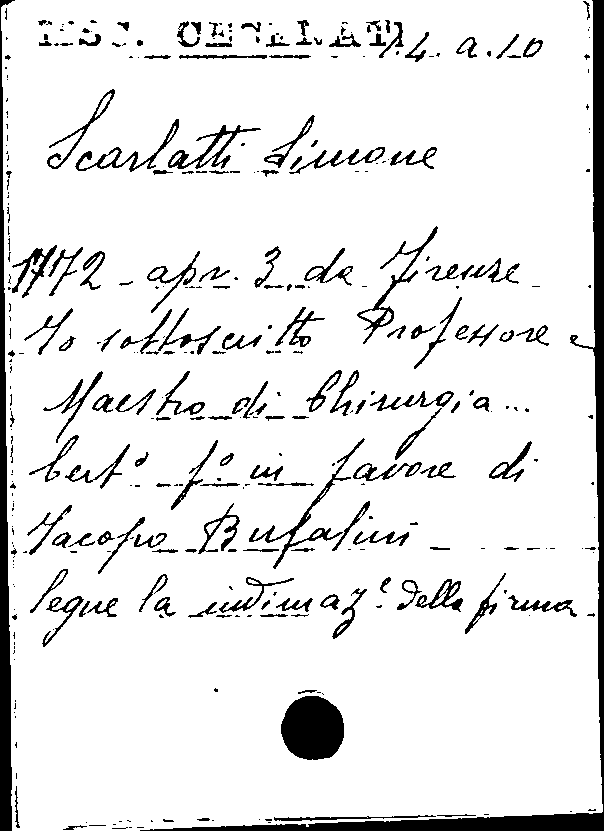 MSC. CECERATI 14. a. 10
Scarlatti Simone
1772 - apr. 3. da Firenze
Io sottoscritto Professore e
Maestro di Chirurgia...
Cert.° f.° in favore di
Jacopo Bufalini
Segue la indimaz.e della firma